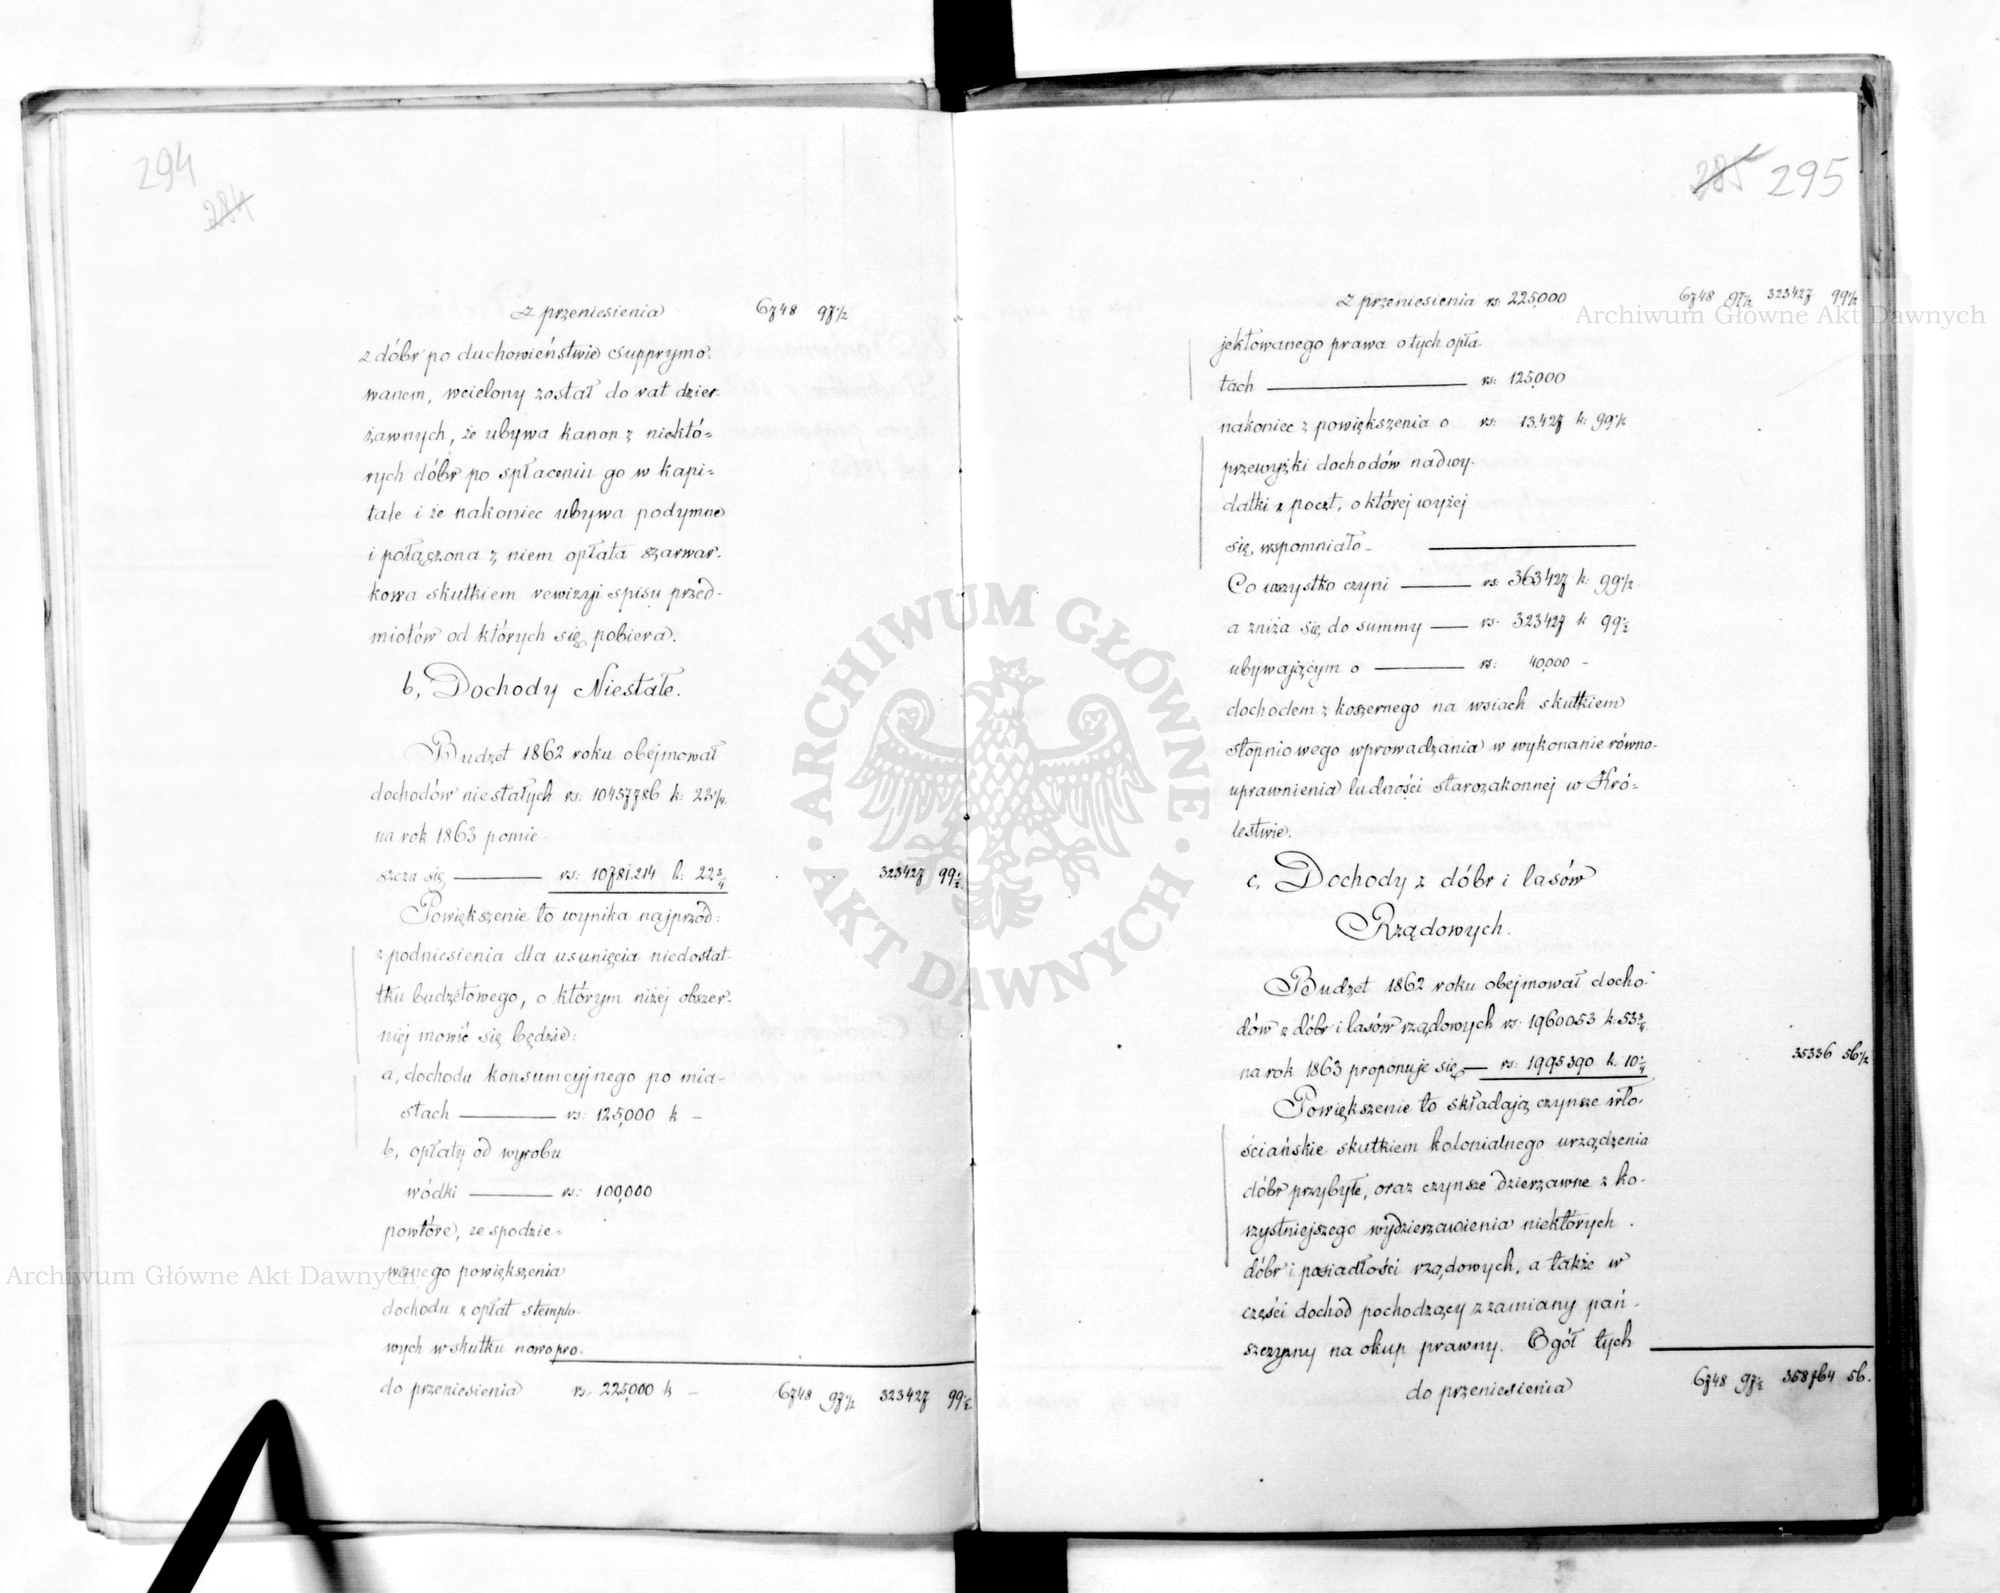 294
284
z przeniesienia 6748 97 1/2
z dóbr po duchowieństwie supprymo=
wanem, wcielony został do rat dzier-
żawnych, że ubywa kanon z niektó=
rych dóbr po spłaceniu go w kapi=
tale i że nakoniec ubywa podymne
i połączona z niem opłata szarwar-
kowa skutkiem rewizyi spisu przed-
miotów od których się pobiera.
b, Dochody Niestałe.
Budżet 1862 roku obejmował
dochodów niestałych rs: 10457786 k: 23 1/4.
na rok 1863 pomie-
szcza się rs: 10781214 k: 22 3/4 323427 99 1/2
Powiększenie to wynika najprzód:
z podniesienia dla usunięcia niedostat-
tku budżetowego, o którym niżej obszer-
niej mowić się będzie:
a, dochodu konsumcyjnego po mia-
stach rs: 125,000 k -
b, opłaty od wyrobu
wódki rs: 100,000
powtóre, ze spodzie=
wanego powiększenia
dochodu z opłat stemplo-
wych w skutku nowo pro-
do przeniesienia rs: 225,000 k - 6748 97 1/2 323427 99 1/2
285 295
z przeniesienia rs: 225,000 6748 97 1/2 323427 99 1/2
jektowanego prawa o tych opła-
tach rs: 125,000
nakoniec z powiększenia o rs: 13,427 k: 99 1/2
przewyżki dochodów nad wy-
datki z poczt, o której wyżej
się, wspomniało -
Co wszystko czyni rs: 363427 k: 99 1/2.
a zniża się do summy rs: 323427 k 99 1/2
ubywającym o rs: 40,000 -
dochodem z koszernego na wsiach skutkiem
stopniowego wprowadzania w wykonanie równo-
uprawnienia ludności starozakonnej w Kró=
lestwie.
c, Dochody z dóbr i lasów
Rządowych.
Budżet 1862 roku obejmował docho-
dów z dóbr i lasów rządowych rs: 1960053 k: 53 3/4
na rok 1863 proponuje się rs: 1995390 k. 10 1/4 35336 56 1/2
Powiększenie to składają czynsze wło-
ściańskie skutkiem kolonialnego urządzenia
dóbr przybyłe, oraz czynsze dzierżawne z ko-
rzystniejszego wydzierżawienia niektórych
dóbr i posiadłości rządowych, a także w
części dochod pochodzący z zamiany pań-
szczyzny na okup prawny. Ogół tych
do przeniesienia 6748 97 1/2 358764 56.
Archiwum Główne Akt Dawnych
Archiwum Główne Akt Dawnych
ARCHIWUM GŁÓWNE AKT DAWNYCH